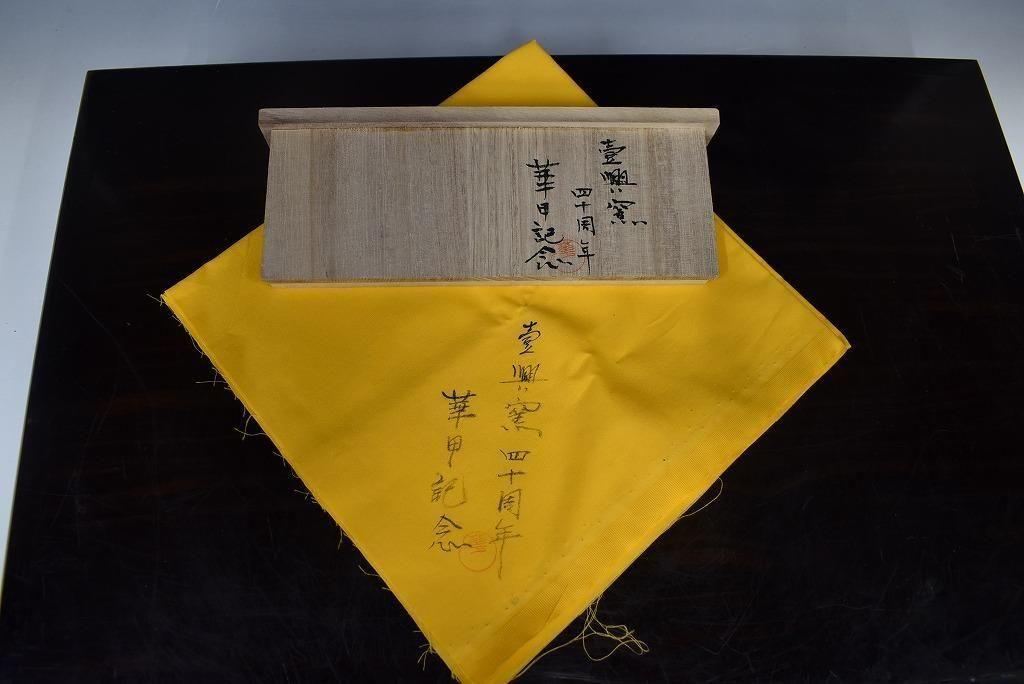 壹興窯
四十周年
華甲記念
壹興窯四十周年
華甲記念